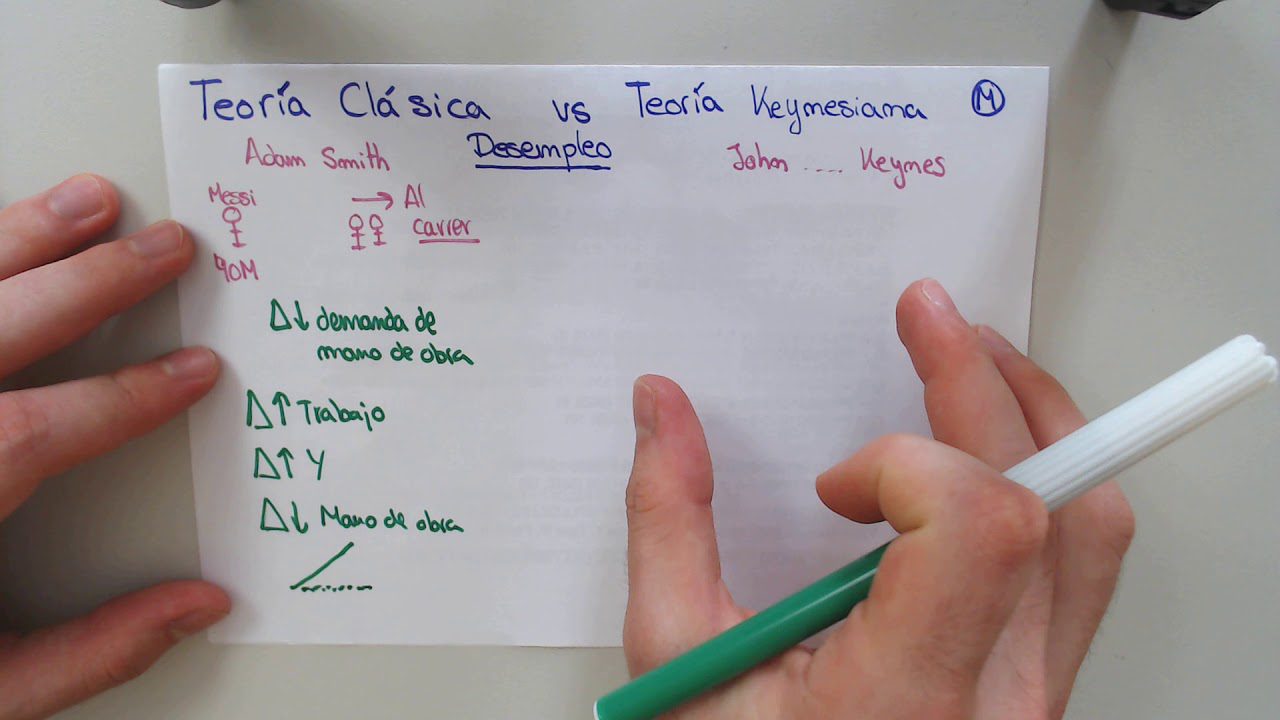 Teoría Clásica vs Teoría Keynesiana M
Desempleo
Adam Smith
John .... Keynes
Messi
90M
→ Al
carrer
Δ↓ demanda de
mano de obra
Δ↑ Trabajo
Δ↑ Y
Δ↓ Mano de obra